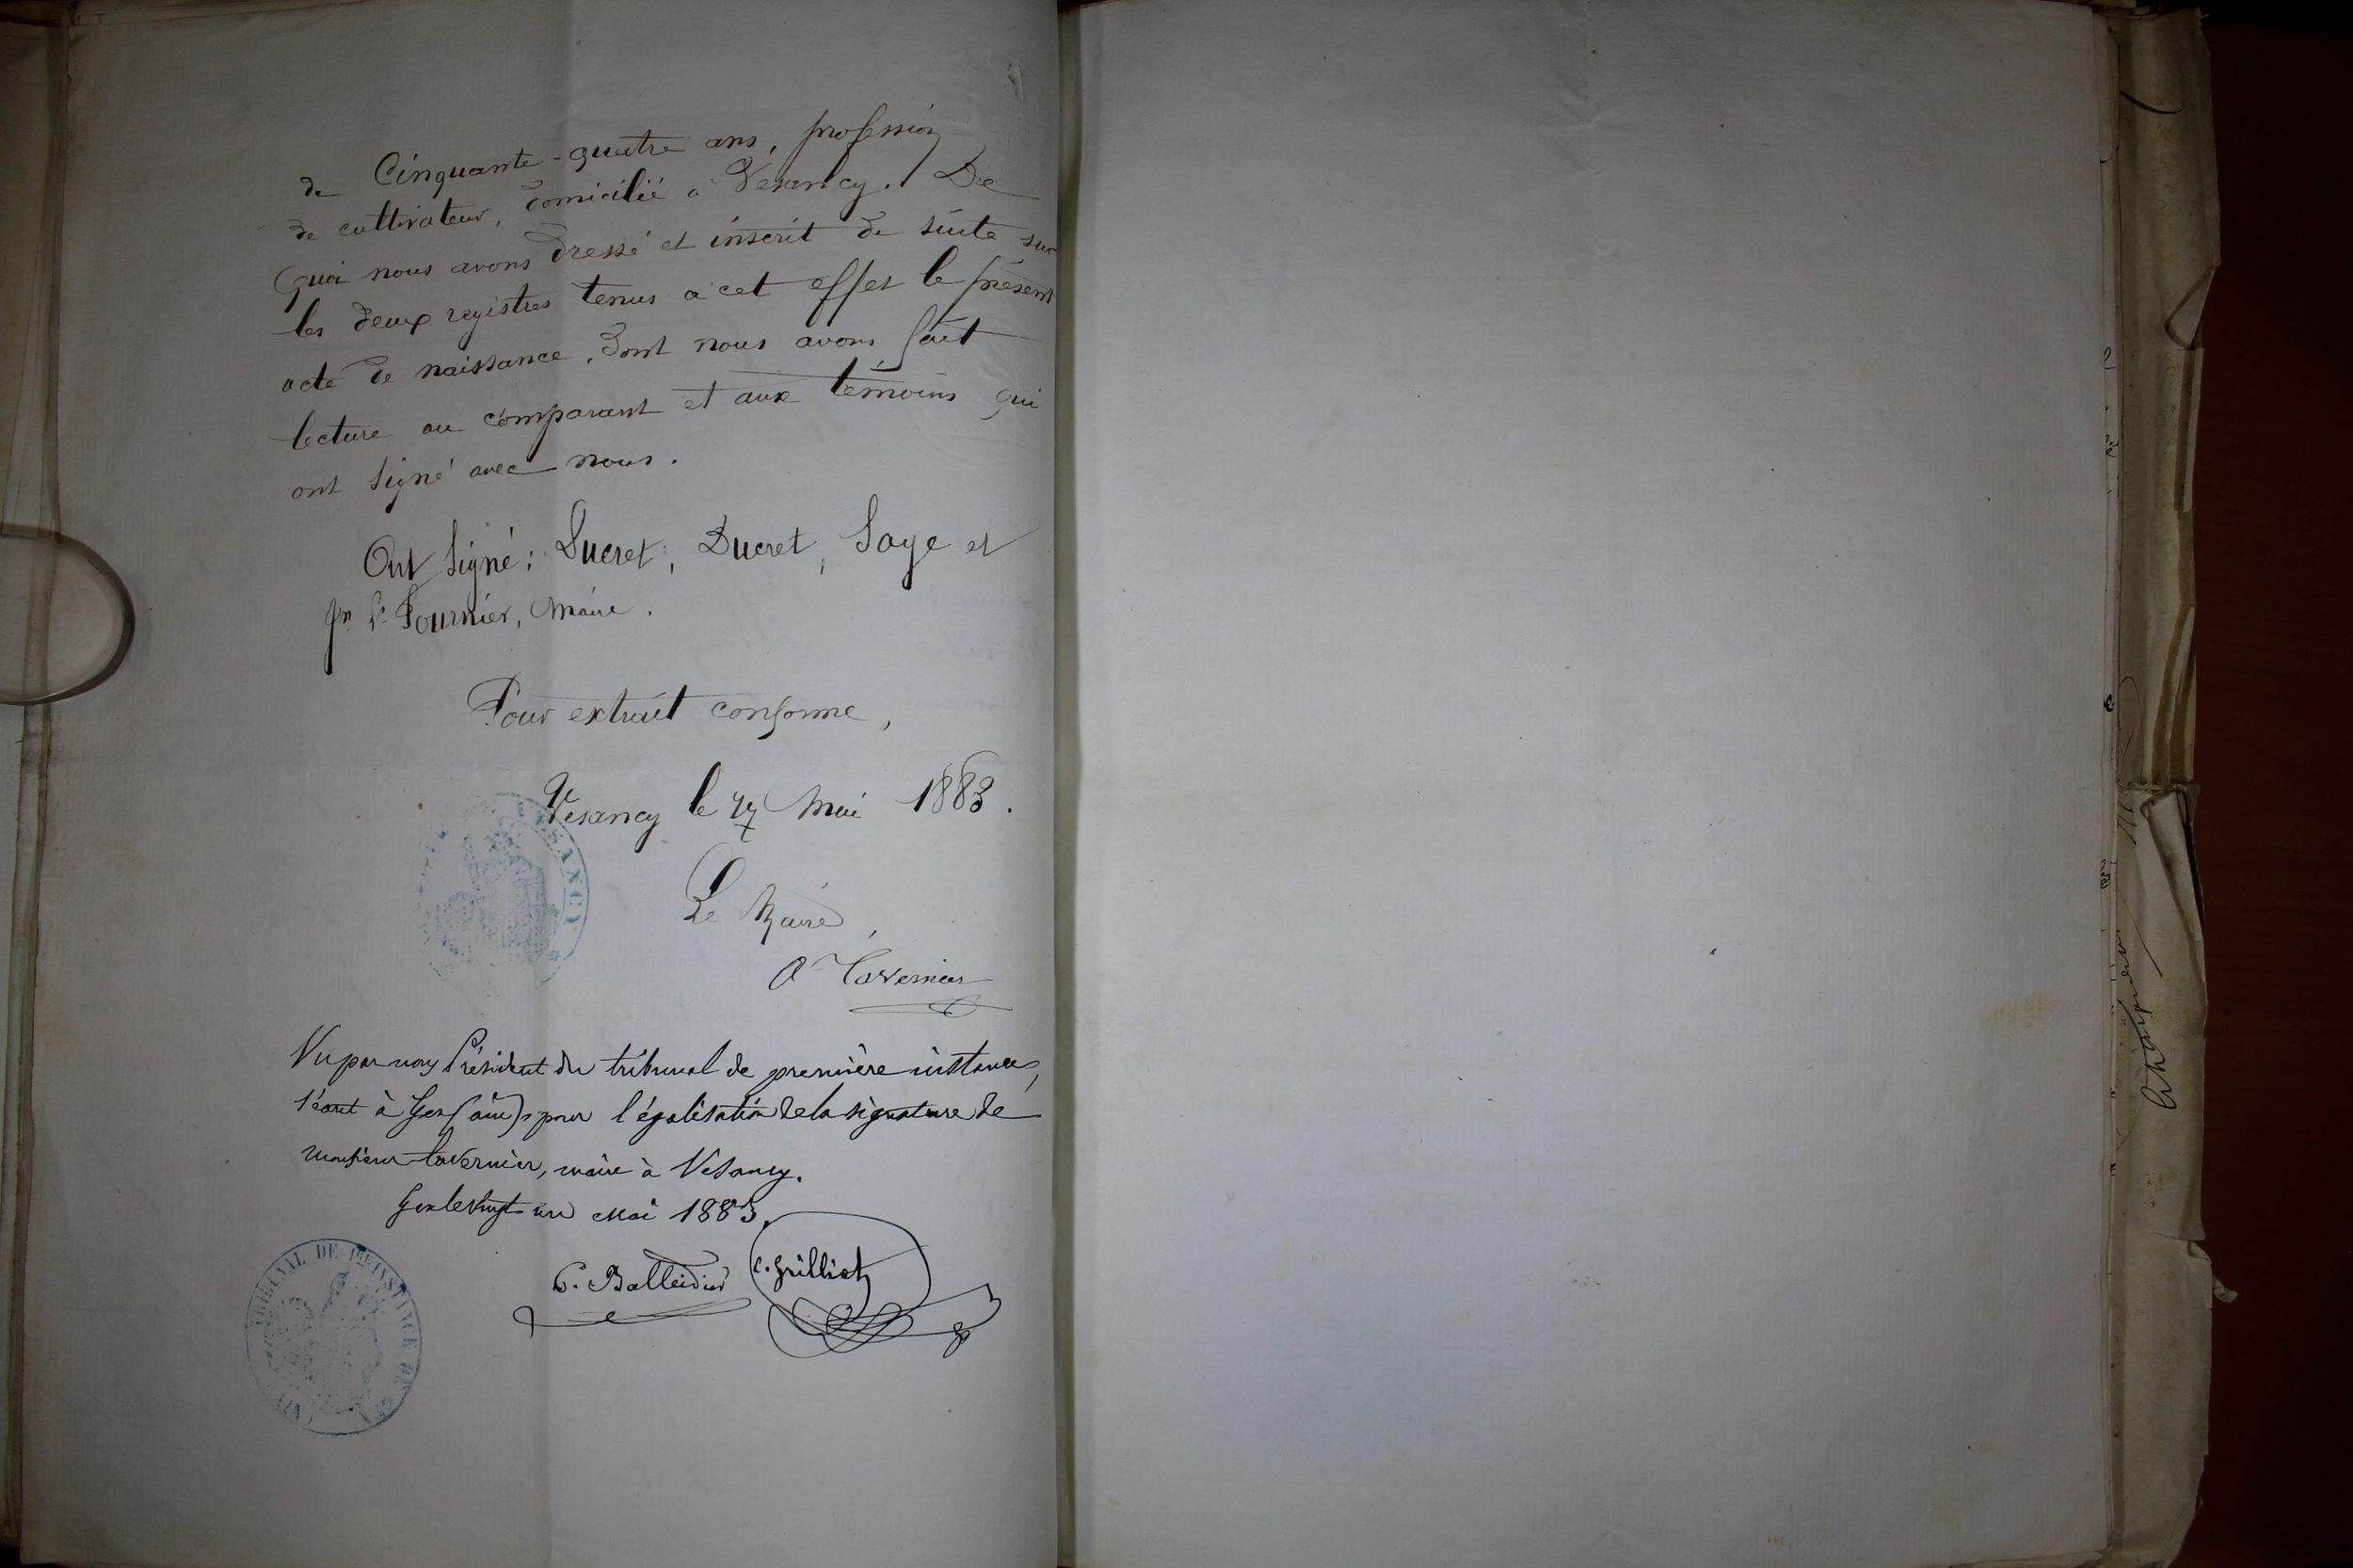 de Cinquante-quatre ans, profession
de cultivateur, domicilié à Vesancy. De
quoi nous avons dressé et inscrit de suite sur
les deux registres tenus à cet effet le présent
acte de naissance, dont nous avons fait
lecture au comparant et aux témoins qui
ont signé avec nous.
Ont signé: Ducret, Ducret, Saye et
Jn Fournier, Maire.
Pour extrait conforme,
Vesancy le Mai 1883.
Le Maire,
Tavernier
VESANCY
Vu par nous Président du tribunal de première instance,
séant à Gex (ain), pour légalisation de la signature de
monsieur tavernier, maire à Vesancy.
Gex le Vingt un Mai 1883.
TRIBUNAL DE 1ère INSTANCE DE GEX